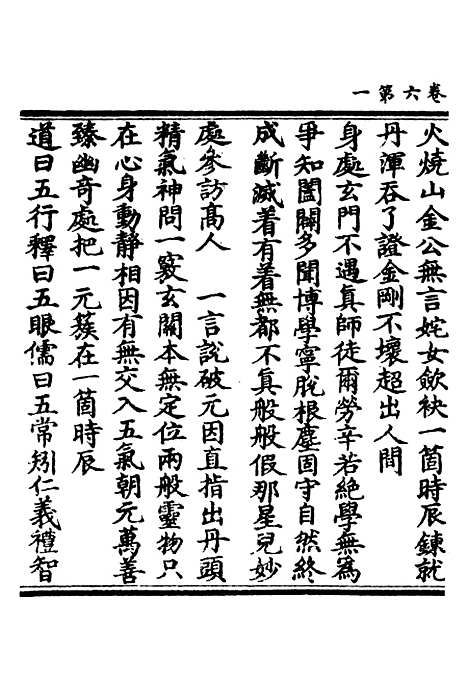 卷六第一
火燒山金公無言姹女歛袂一箇時辰鍊就
丹渾吞了證金剛不壞超出人間
身處玄門不遇真師徒爾勞辛若絕學無爲
爭知闔闢多聞博學寧脫根塵固守自然終
成斷滅着有着無都不真般般假那星兒妙
處參訪高人　一言說破元因直指出丹頭
精氣神問一竅玄關本無定位兩般靈物只
在心身動靜相因有無交入五氣朝元萬善
臻幽奇處把一元簇在一箇時辰
道曰五行釋曰五眼儒曰五常矧仁義禮智